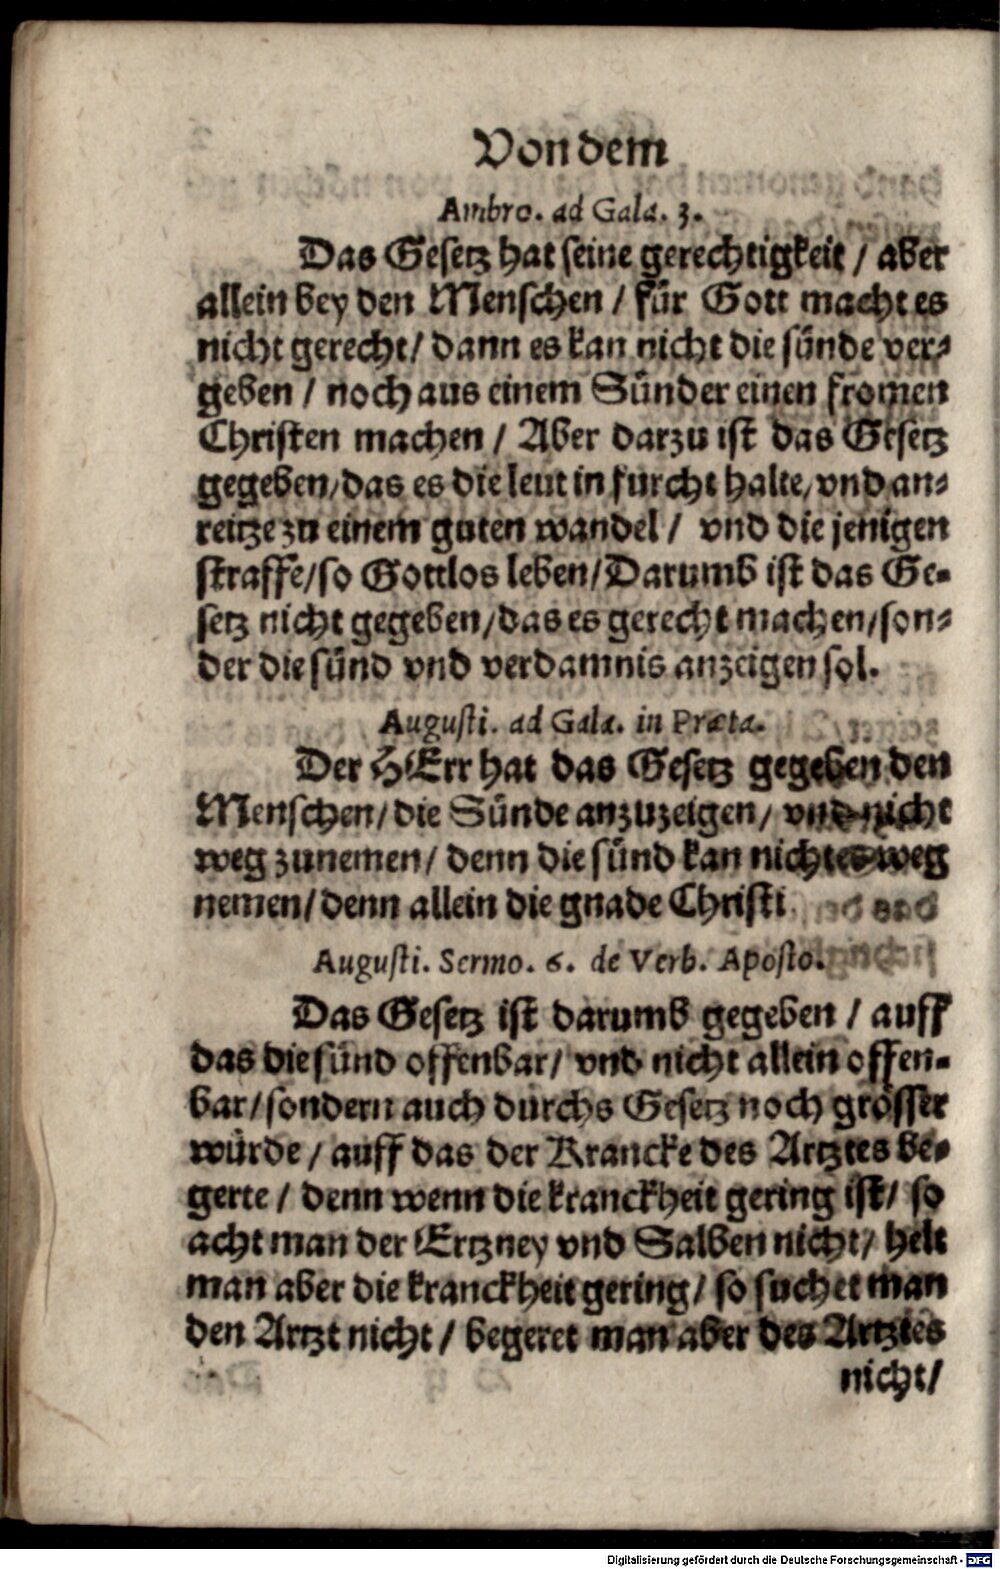 Von dem
Ambro. ad Gala. 3.
Das Gesetz hat seine gerechtigkeit / aber
allein bey den Menschen / für Gott macht es
nicht gerecht / dann es kan nicht die sünde ver⸗
geben / noch aus einem Sünder einen fromen
Christen machen / Aber darzu ist das Gesetz
gegeben / das es die leut in furcht halte / vnd an⸗
reitze zu einem guten wandel / vnd die jenigen
straffe / so Gottlos leben / Darumb ist das Ge⸗
setz nicht gegeben / das es gerecht machen / son⸗
der die sünd vnd verdamnis anzeigen sol.
Augusti. ad Gala. in Præta.
Der HErr hat das Gesetz gegeben den
Menschen / die Sünde anzuzeigen / vnd nicht
weg zunemen / denn die sünd kan nichtes weg
nemen / denn allein die gnade Christi
Augusti. Sermo. 6. de Verb. Aposto.
Das Gesetz ist darumb gegeben / auff
das die sünd offenbar / vnd nicht allein offen⸗
bar / sondern auch durchs Gesetz noch grösser
würde / auff das der Krancke des Artztes be⸗
gerte / denn wenn die kranckheit gering ist / so
acht man der Ertzney vnd Salben nicht / helt
man aber die kranckheit gering / so suchet man
den Artzt nicht / begeret man aber des Artztes
nicht /
Digitalisierung gefördert durch die Deutsche Forschungsgemeinschaft - DFG